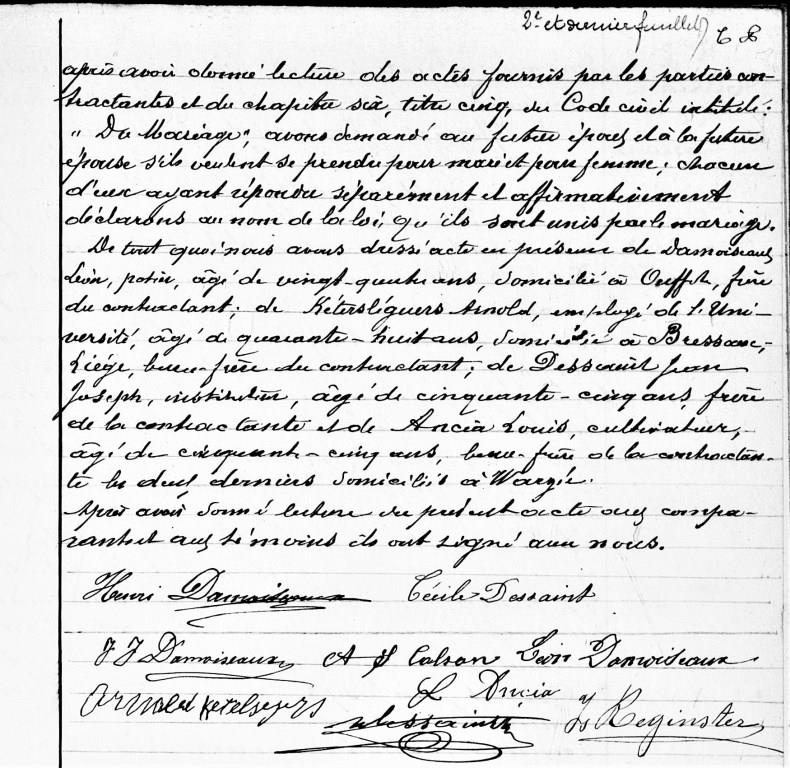 2e et dernier feuillet
après avoir donné lecture des actes fournis par les parties con-
tractantes et du chapitre six, titre cinq, du Code civil intitulé:
"Du Mariage", avons demandé au futur époux et à la future
épouse s'ils veulent se prendre pour mari et pour femme; chacun
d'eux ayant répondu séparément et affirmativement
déclarons au nom de la loi, qu'ils sont unis par le mariage.
De tout quoi nous avons dressé acte en présence de Damoiseaux
Léon, potier, âgé de vingt-quatre ans, domicilié à Ouffet, frère
du contractant; de Kételslégers Arnold, employé de l'Uni-
versité, âgé de quarante-huit ans, domicilié à Bressoux,-
Liége, beau-frère du contractant; de Dessaint Jean
Joseph, instituteur, âgé de cinquante-cinq ans, frère
de la contractante et de Ancia Louis, cultivateur,
âgé de cinquante-cinq ans, beau-frère de la contractan-
te les deux derniers domiciliés à Warzée.
Après avoir donné lecture du présent acte aux compa-
rants et aux témoins ils ont signé avec nous.
Henri Damoiseaux Cécile Dessaint
J J Damoiseaux A J Colson Léon Damoiseaux
Arnold Ketelsegers L Ancia
Dessaint Reginster